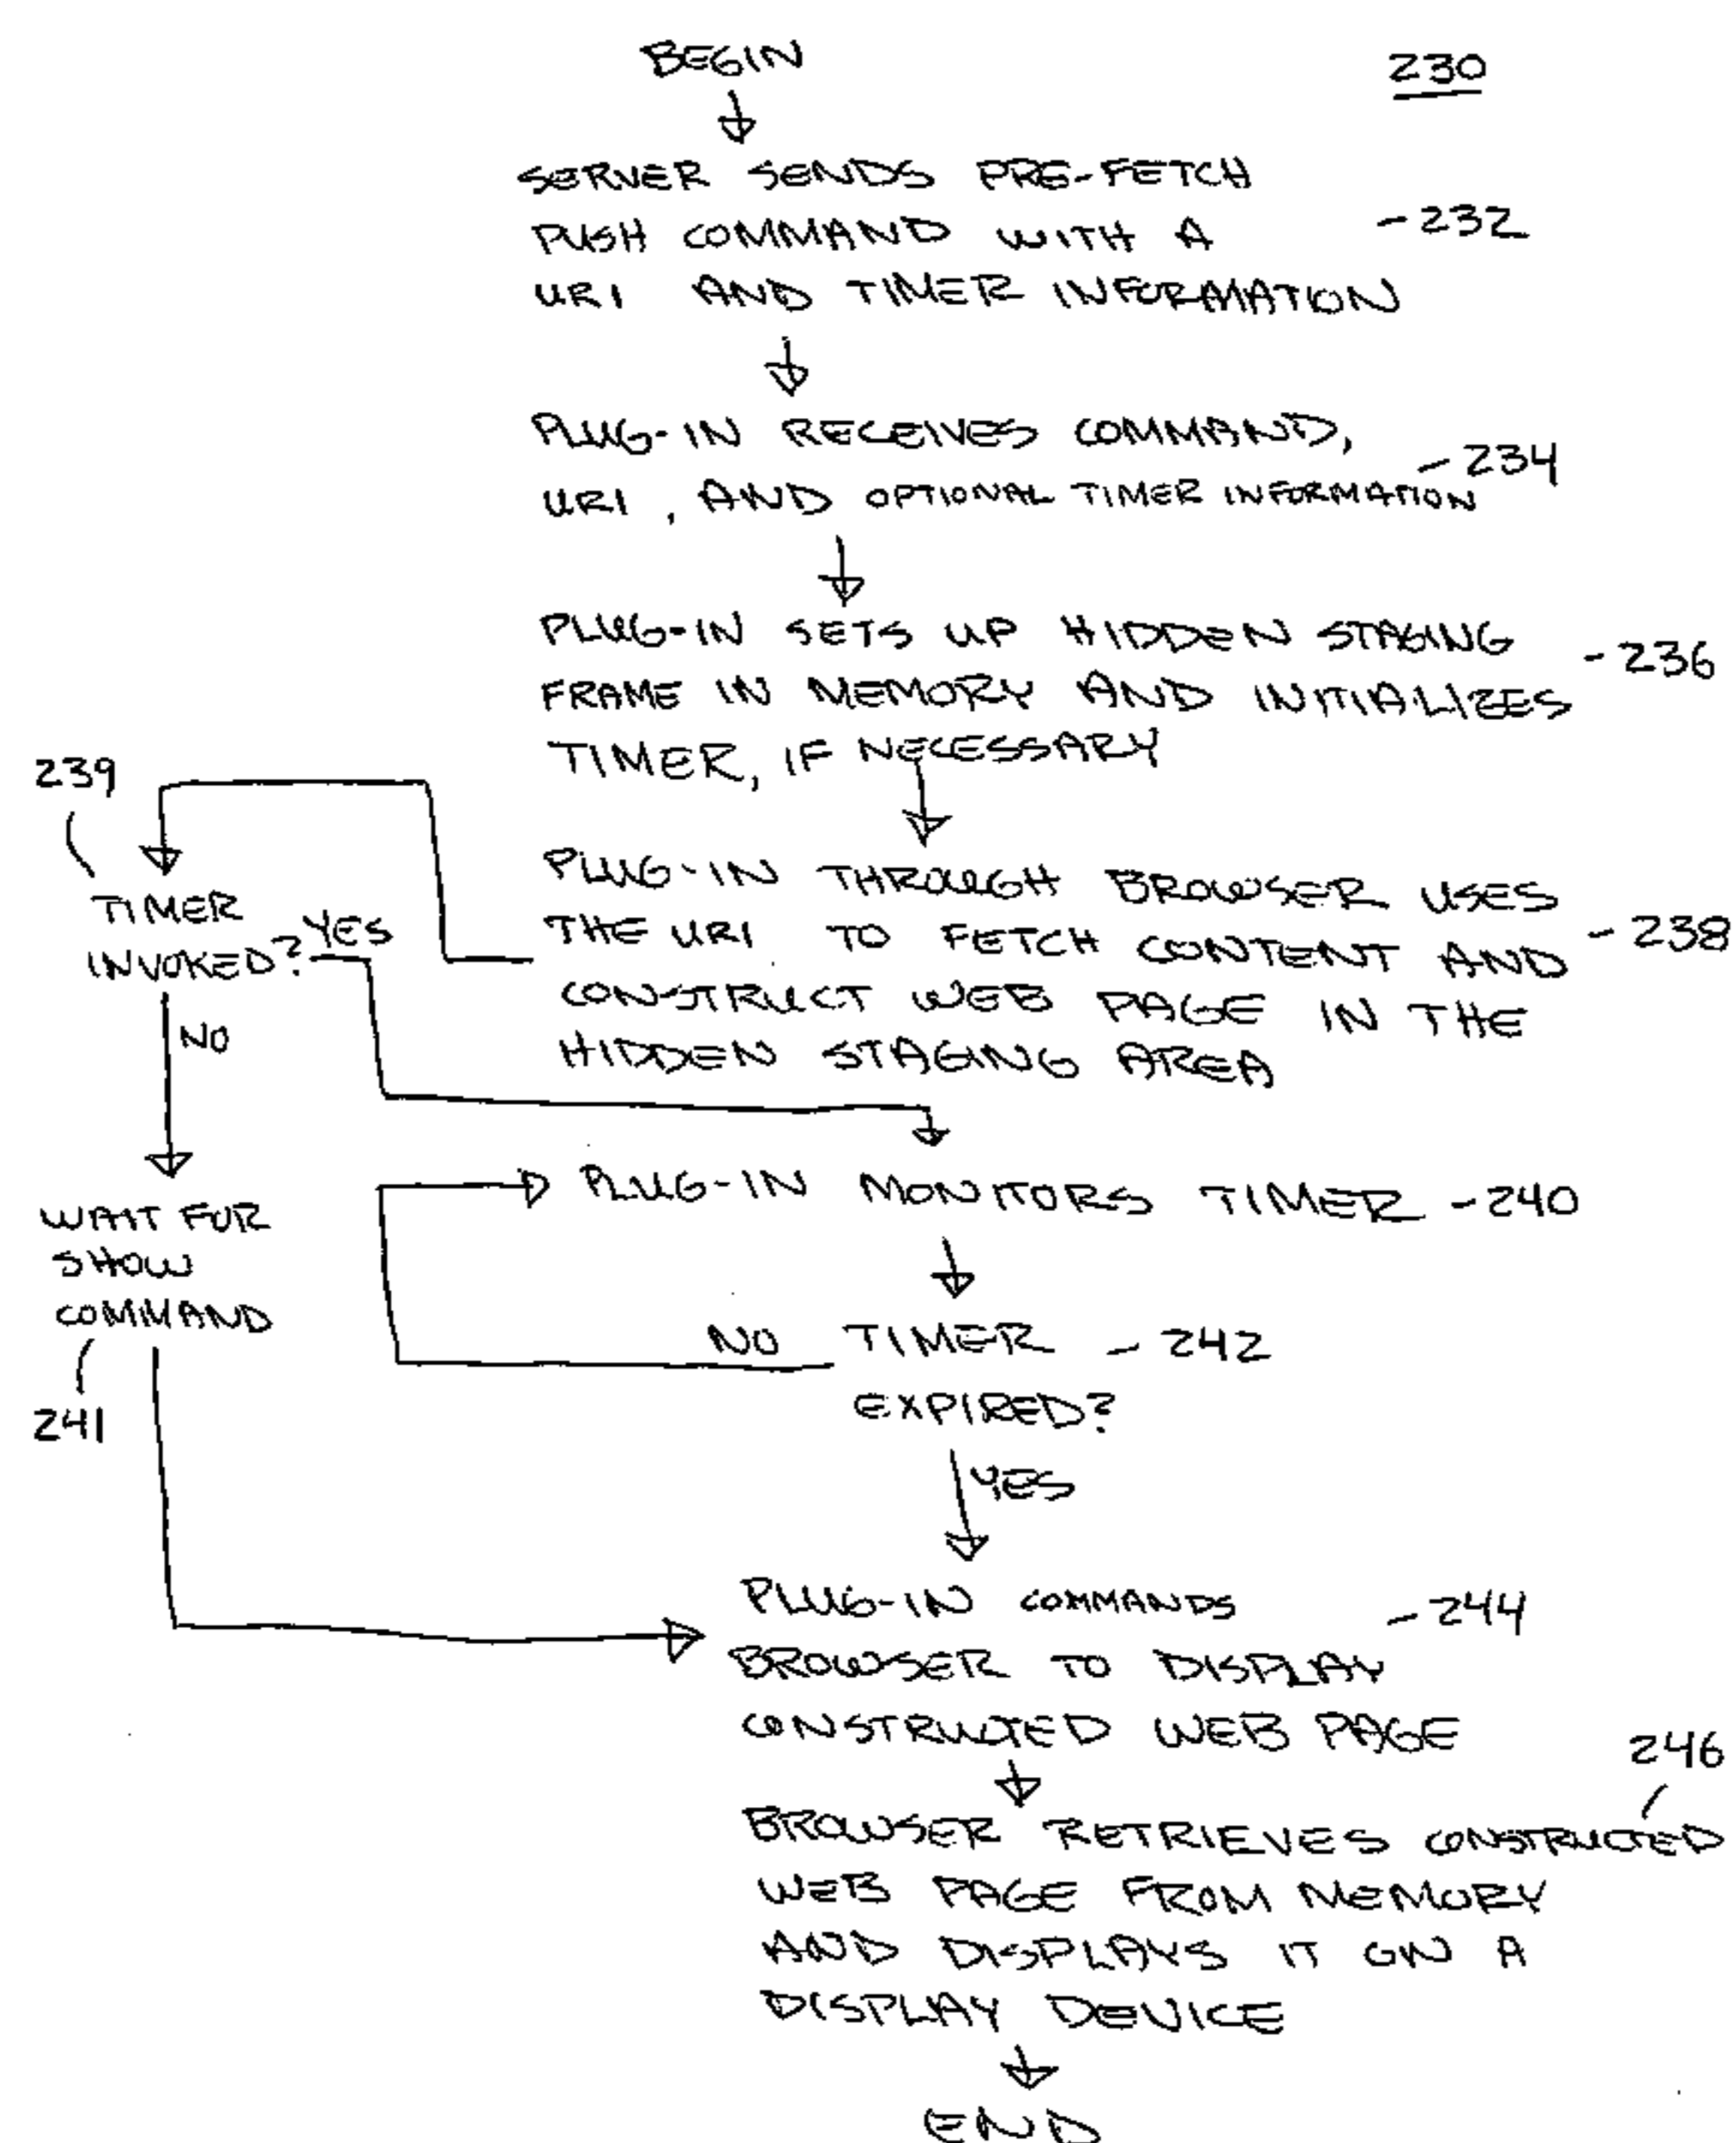 BEGIN
230
SERVER SENDS PRE-FETCH
PUSH COMMAND WITH A
-232
URI AND TIMER INFORMATION
PLUG-IN RECEIVES COMMAND,
-234
URI, AND OPTIONAL TIMER INFORMATION
PLUG-IN SETS UP HIDDEN STAGING
-236
FRAME IN MEMORY AND INITIALIZES
TIMER, IF NECESSARY
239
TIMER
INVOKED?
YES
NO
PLUG-IN THROUGH BROWSER USES
THE URI TO FETCH CONTENT AND
-238
CONSTRUCT WEB PAGE IN THE
HIDDEN STAGING AREA
WAIT FOR
SHOW
COMMAND
241
PLUG-IN MONITORS TIMER -240
NO TIMER -242
EXPIRED?
YES
PLUG-IN COMMANDS
-244
BROWSER TO DISPLAY
CONSTRUCTED WEB PAGE
246
BROWSER RETRIEVES CONSTRUCTED
WEB PAGE FROM MEMORY
AND DISPLAYS IT ON A
DISPLAY DEVICE
END